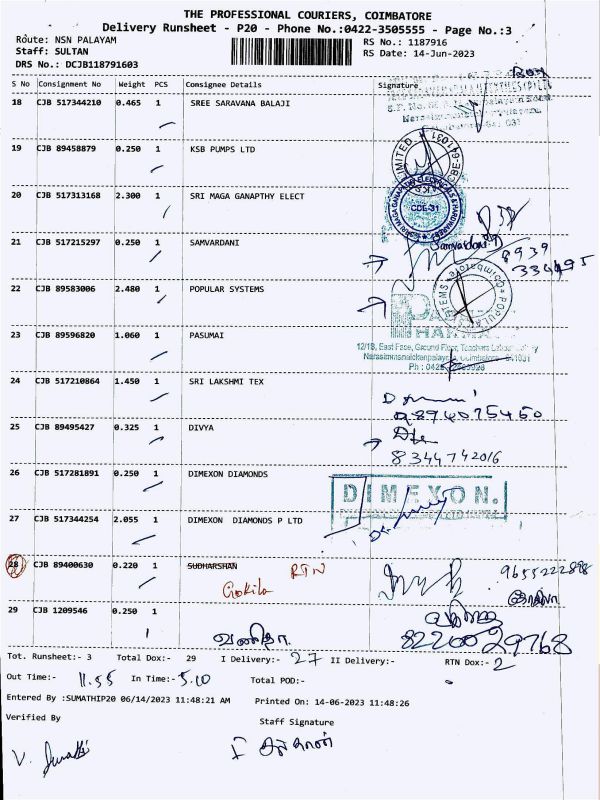 THE PROFESSIONAL COURIERS, COIMBATORE
Delivery Runsheet - P20 - Phone No.:0422-3505555 - Page No.:3
Route: NSN PALAYAM
Staff: SULTAN
DRS No.: DCJB118791603
RS No.: 1187916
RS Date: 14-Jun-2023
S No Consignment No Weight PCS Consignee Details Signature
18 CJB 517344210 0.465 1 SREE SARAVANA BALAJI
19 CJB 89458879 0.250 1 KSB PUMPS LTD
20 CJB 517313168 2.300 1 SRI MAGA GANAPTHY ELECT
SRI MAGA GANAPATHY ELECTRICALS & HARDWARES
CBE-31
21 CJB 517215297 0.250 1 SAMVARDANI
Samvardani
8939
334495
22 CJB 89583006 2.480 1 POPULAR SYSTEMS
23 CJB 89596820 1.060 1 PASUMAI
12/1B, East Face, Ground Floor, Teachers
Narasimnaickenpalayam, Coimbatore - 641031
24 CJB 517210864 1.450 1 SRI LAKSHMI TEX
894075450
25 CJB 89495427 0.325 1 DIVYA
8344742016
26 CJB 517281891 0.250 1 DIMEXON DIAMONDS
DIMEXON.
27 CJB 517344254 2.055 1 DIMEXON DIAMONDS P LTD
28 CJB 89400630 0.220 1 SUDHARSHAN RTN
Gokila
9655222898
கோகிலா
29 CJB 1209546 0.250 1
வனிதா
8220029768
Tot. Runsheet:- 3 Total Dox:- 29 I Delivery:- 27 II Delivery:- RTN Dox:- 2
Out Time:- 11.55 In Time:- 5.10 Total POD:-
Entered By :SUMATHIP20 06/14/2023 11:48:21 AM Printed On: 14-06-2023 11:48:26
Verified By Staff Signature